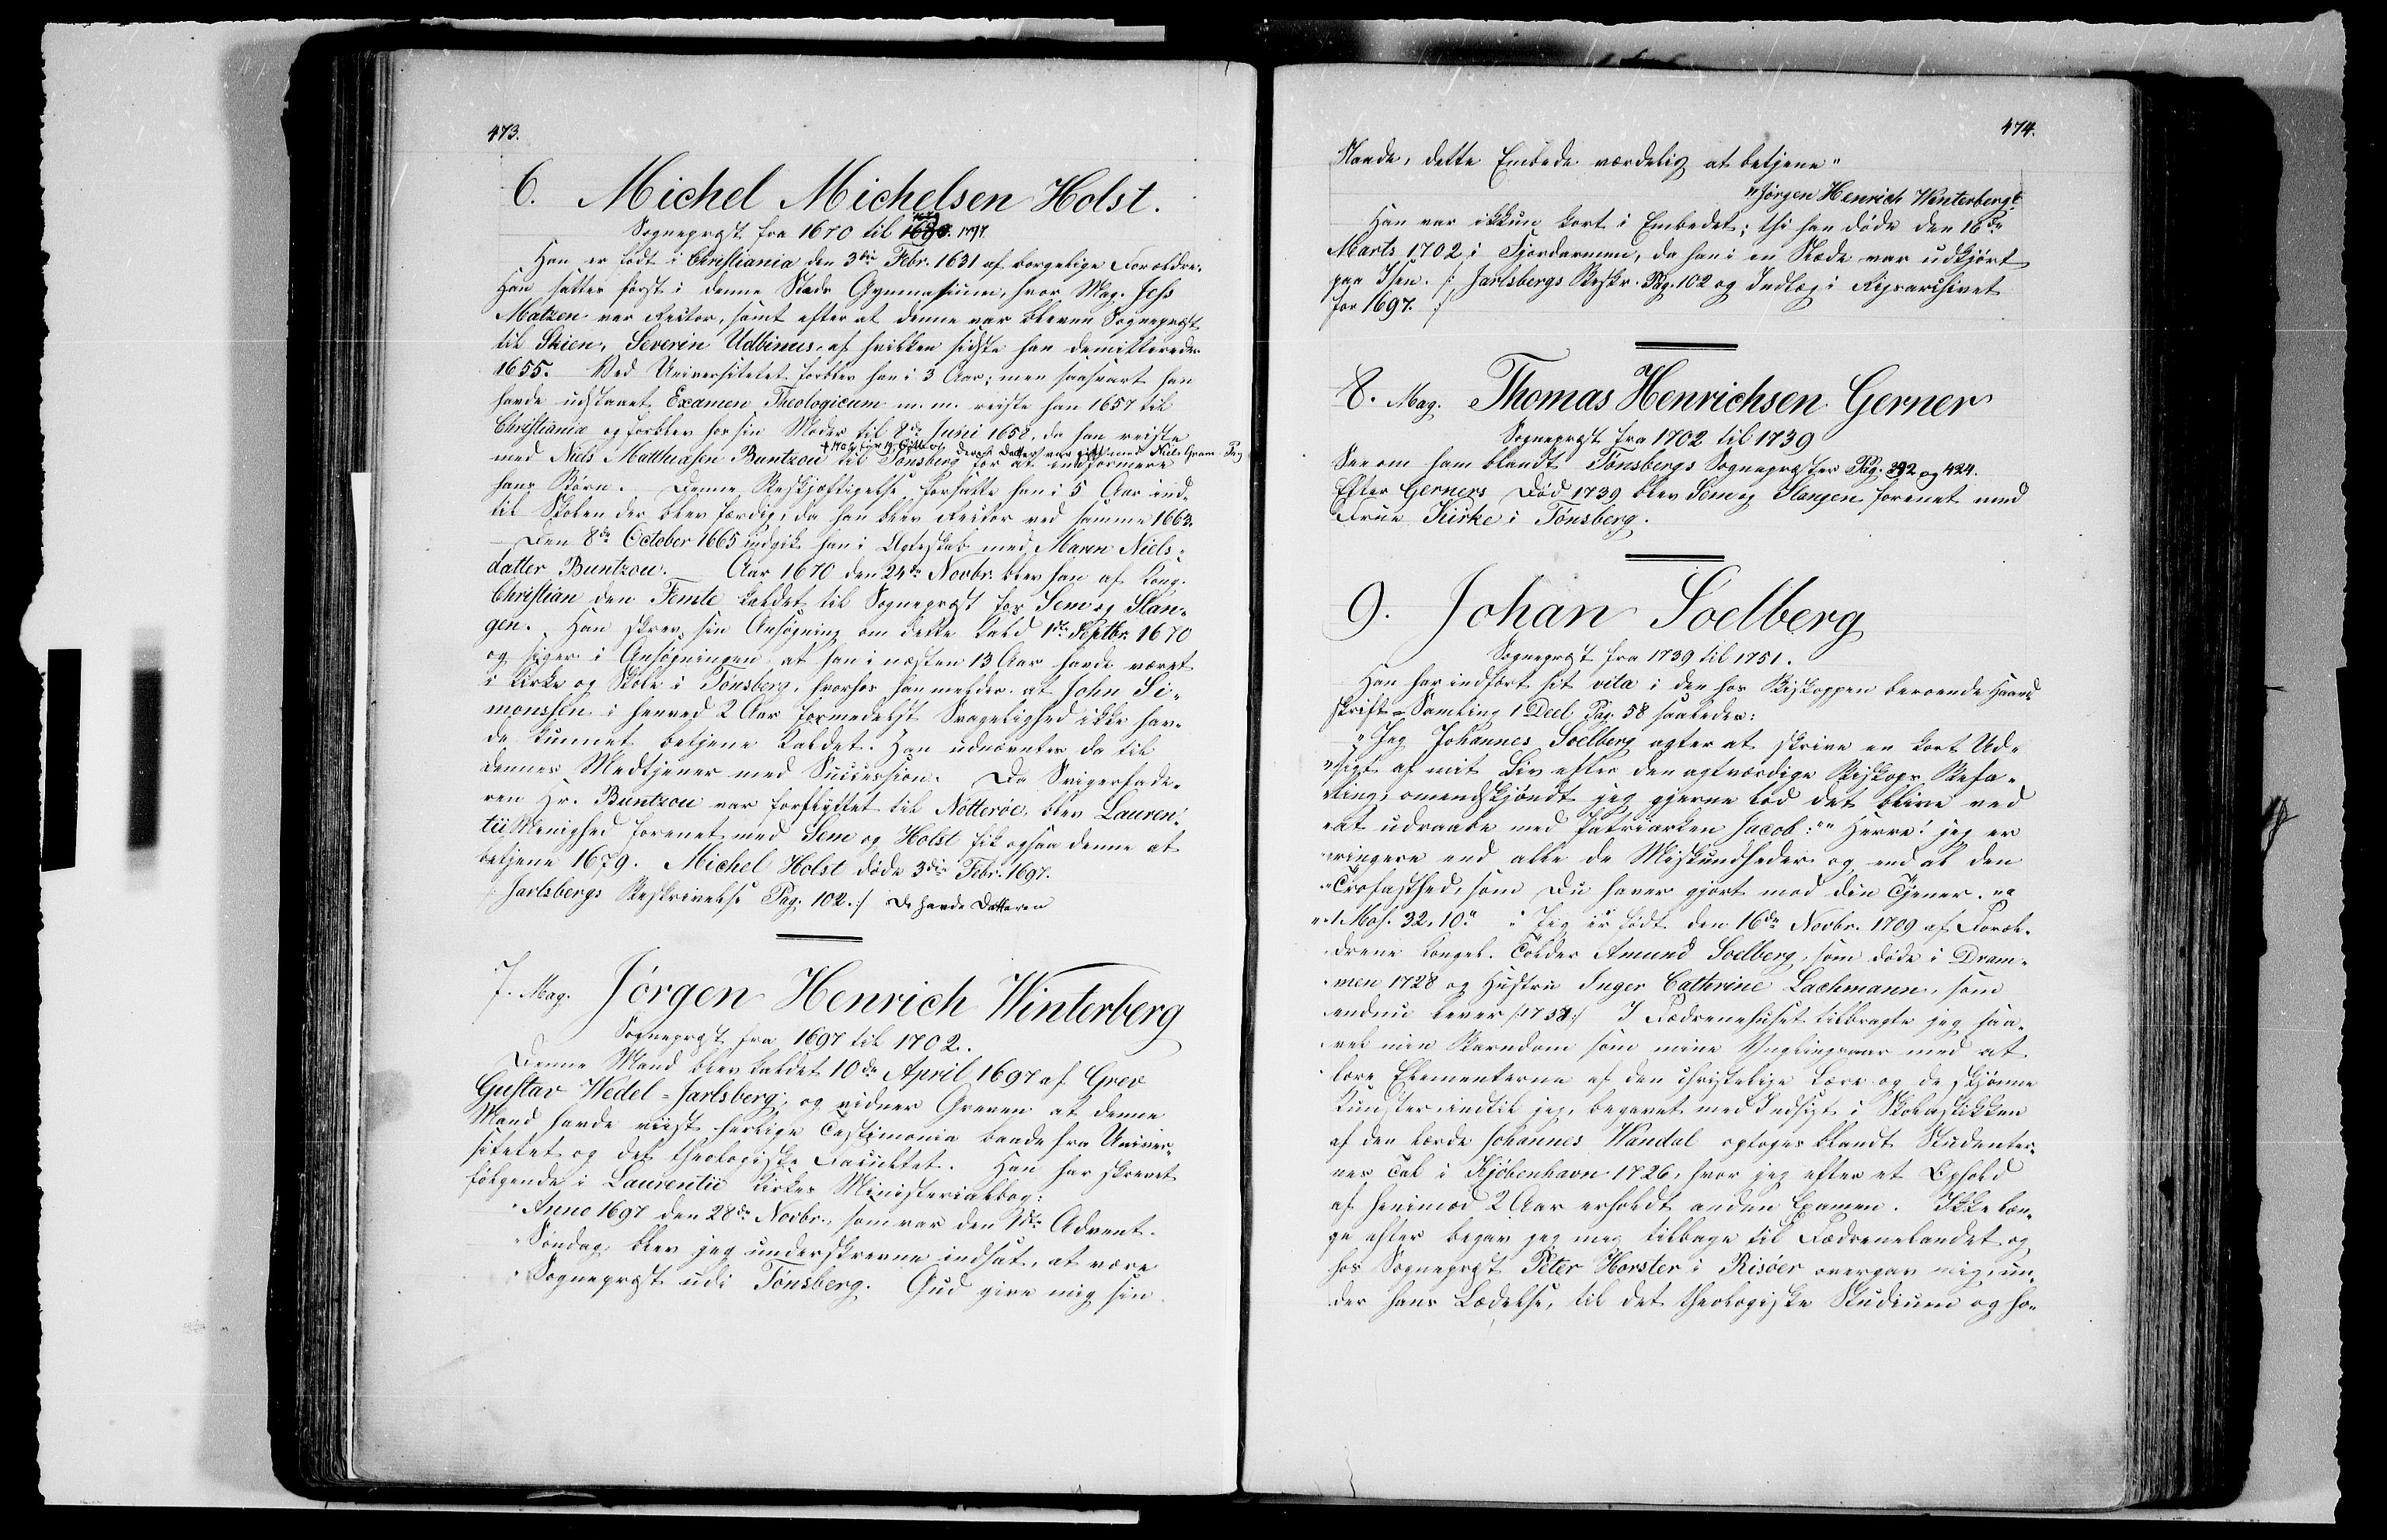 473.
6. Michel Michelsen Holst.
Sognepræst fra 1670 til 1697.
Han er født i Christiania den 3die Febr. 1631 af borgelige Forældre.
Han sattes først i denne Stads Gymnasium, hvor Mag. Jess
Matzen var Rector, samt efter at denne var bleven Sognepræst
til Skien, Severin Udbinus, af hvilken sidste han demitteredes
1655. Ved Universitetet forblev han i 3 Aar; men saasnart han
havde udstaaet Examen Theologicum m. m. reiste han 1657 til
Christiania og forblev hos sin Moder til 8de Juni 1658, da han reiste
deres Datter var gift med Niels Gram Pag
med Niels Matthiasen Buntzou til Tønsberg for at informere
hans Børn. Denne Beskjæftigelse forsatte han i 5 Aar ind-
til Skolen der blev færdig, da han blev Rector ved samme 1663.
Den 8de October 1665 indgik han i Ægteskab med Maren Niels-
datter Buntzou. Aar 1670 den 24de Novbr. blev han af Kong
Christian den Femte kaldet til Sognepræst for Sem og Slan-
gen. Han skrev sin Ansøgning om dette Kald 1ste Septbr. 1670
og siger i Ansøgningen at han i næsten 13 Aar havde været
i Kirke og Skole i Tønsberg, hvorhos han melder at John Si-
monssen i henved 2 Aar formedelst Svagelighed ikke hav-
de kunnet betjene Kaldet. Han udnævntes da til
dennes Medtjener med Succession. Da Svigerfade-
ren Hr. Buntzou var forflyttet til Nøtterøe, blev Lauren-
tii Menighed forenet med Sem og Holst fik ogsaa denne at
betjene 1679. Michel Holst døde 3die Febr. 1697.
/: Jarlsbergs Beskrivelse Pag. 102. :/ De havde Datteren
7. Mag. Jørgen Henrich Winterberg
Sognepræst fra 1697 til 1702.
Denne Mand blev kaldet 10de April 1697 af Grev
Gustav Wedel-Jarlsberg, og vidner Greven at denne
Mand havde viist herlige Testimonia baade fra Univer-
sitetet og det theologiske Facultet. Han har skrevet
følgende i Laurentii Kirkes Ministerialbog:
"Anno 1697 den 28de Novbr., som var den 1ste Advent-
"Søndag, blev jeg underskrevne indsat, at være
"Sognepræst udi Tønsberg. Gud give mig sin
474.
Naade, dette Embede værdelig at betjene"
"Jørgen Henrich Winterberg".
Han var ikkun kort i Embedet; thi han døde den 16de
Marts 1702 i Fjordarmen, da han i en Slæde var udkjørt
paa Isen. /: Jarlsbergs Beskr. Pag. 102 og Indlæg i Rigsarchivet
for 1697. :/
8. Mag. Thomas Henrichsen Gerner
Sognepræst fra 1702 til 1739
See om ham blandt Tønsbergs Sognepræster Pag. 392 og 424.
Efter Gerners Død 1739 blev Sem og Slangen forenet med
Frue Kirke i Tønsberg.
9. Johan Soelberg
Sognepræst fra 1739 til 1751.
Han har indført sit vita i den hos Biskoppen beroende Haand-
skrift-Samling 1 Deel Pag. 58 saaledes:
"Jeg Johannes Soelberg agter at skrive en kort Ud-
"sigt af mit Liv efter den agtværdige Biskops Befa-
"ling, omendskjøndt jeg gjerne lod det blive ved
"at udraabe med Patriarken Jacob: "" Herre! jeg er
"ringere end alle de Miskundheder og end al den
"Trofasthed, som Du haver gjort mod din Tjener. ""
""1 Mos. 32, 10." "Jeg er født den 16de Novbr. 1709 af Foræl-
drene kongel. Tolder Amund Soelberg, som døde i Dram-
men 1728 og Hustru Inger Cathrine Lachmann, som
endnu lever /: 1758 :/ I Fædrenehuset tilbragte jeg saa-
vel min Barndom som mine Ynglingsaar med at
lære Elementerne af den christelige Lære og de skjønne
Kunster, indtil jeg, begavet med Indsigt i Skolastikken
af den lærde Johannes Wandal optoges blandt Studenter-
nes Tal i Kjøbenhavn 1726, hvor jeg efter et Ophold
af henimod 2 Aar erholdt anden Examen. Ikke læn-
ge efter begav jeg mig tilbage til Fædrenelandet og
hos Sognepræst Peter Horster i Risøer overgav mig, un-
der hans Lædelse, til det theologiske Studium og ho-